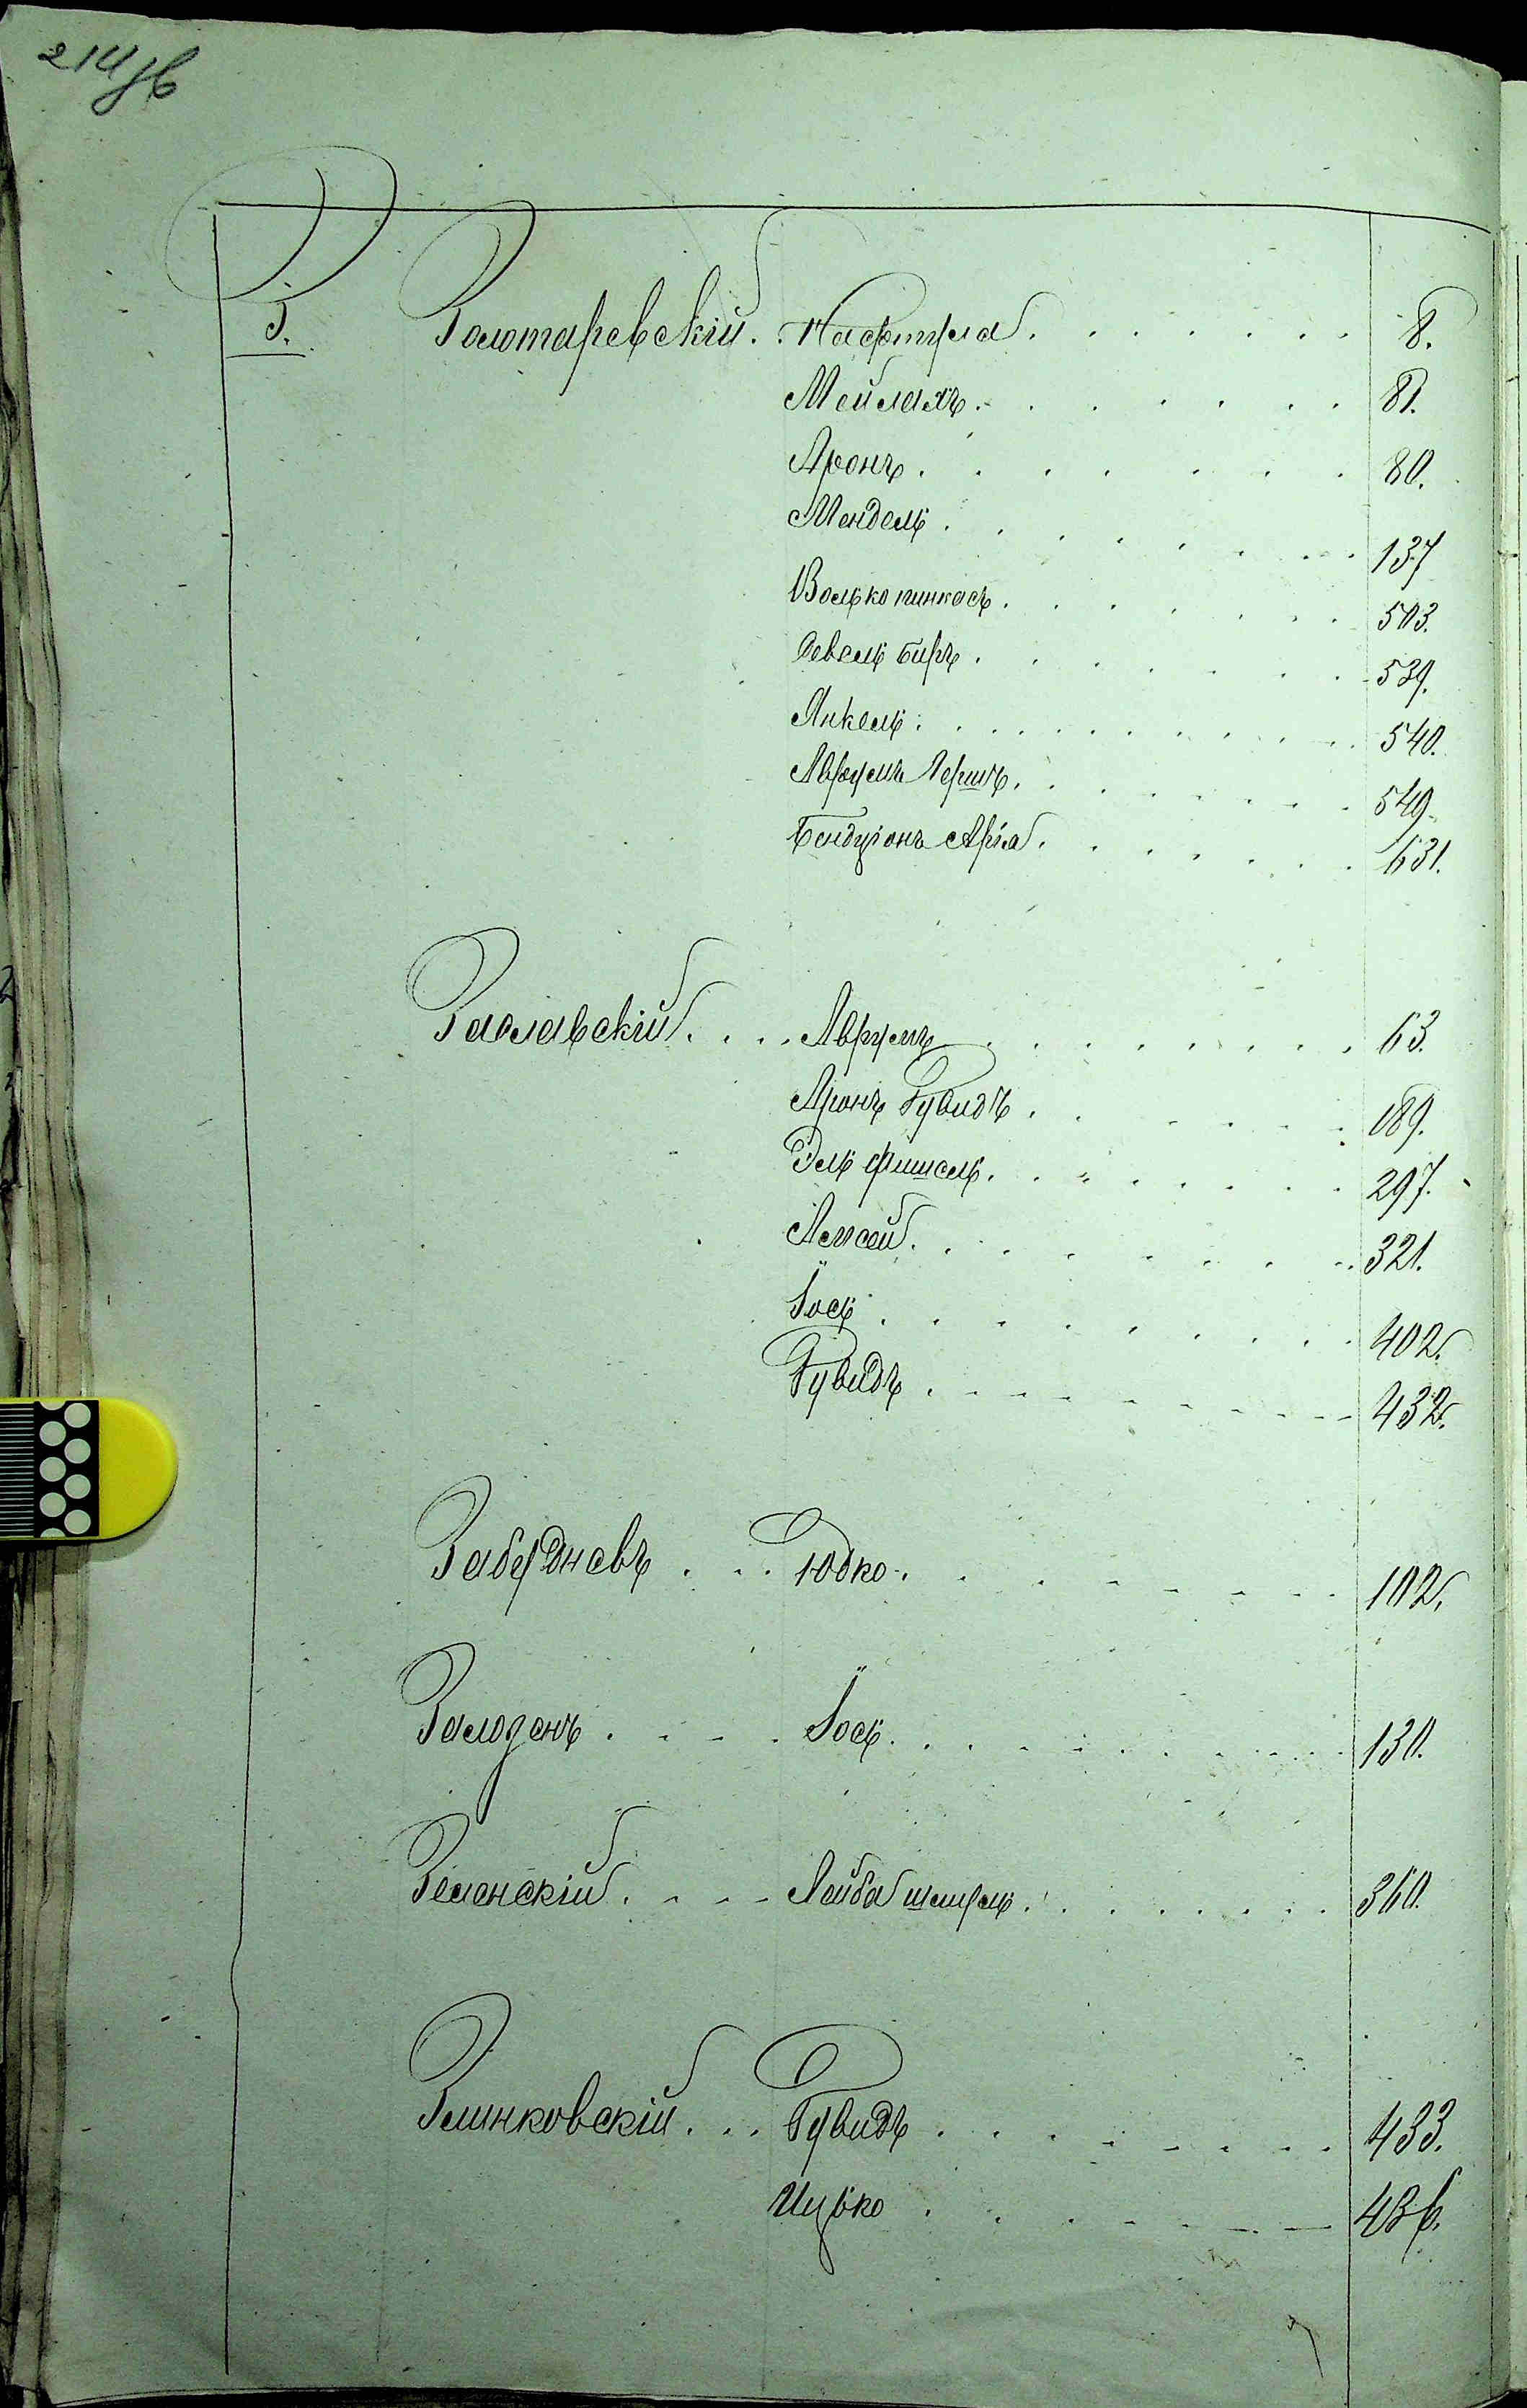 214 об
З. Золотаревскій . . Нафтула . . . . . . . 8.
Мейлахъ . . . . . . . 81.
Аронъ . . . . . . . 80.
Мендель . . . . . . . 137
Волько пинкасъ . . . . . . . 503.
Севель Биръ . . . . . . . 539.
Янкель . . . . . . . 540.
Аврумъ Гершъ . . . . . . . 549.
Бенціонъ Арія . . . . . . . 631.
Заславскій . . . Аврумъ . . . . . . . 63.
Аронъ Дувидъ . . . . . . . 189.
Эль фишель . . . . . . . 297.
Алксей . . . . . . . 321.
Іось . . . . . . . 402.
Дувидъ . . . . . . . 432.
Юдко . . . . . . . 102.
Іось . . . . . . . 130.
Зеленскій . . . . Лейба шмуль . . . . . . . 360.
Зинковскій . . . Дувидъ . . . . . . . 433.
Ицько . . . . . . . 436.